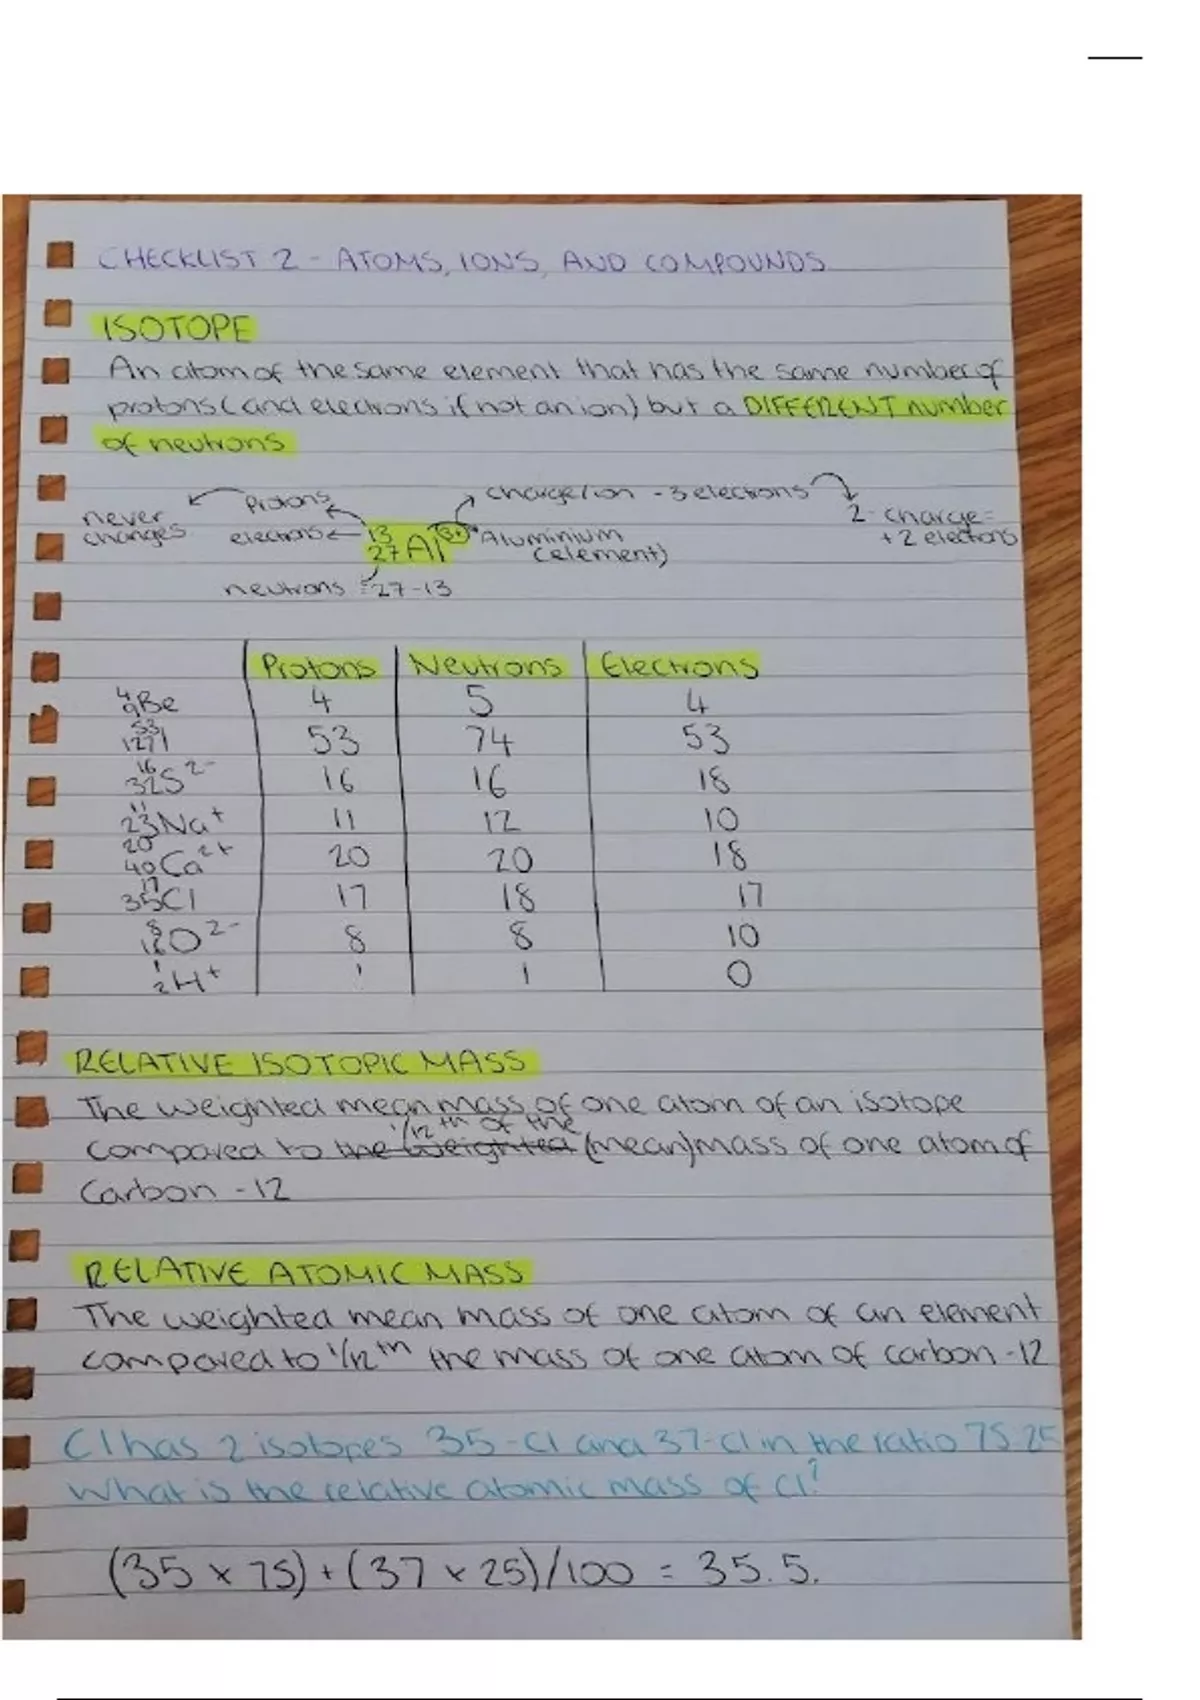 CHECKLIST 2 - ATOMS, IONS, AND COMPOUNDS
ISOTOPE
An atom of the same element that has the same number of
protons (and electrons if not an ion) but a DIFFERENT number
of neutrons
never changes
Protons
electrons
13
27 Al 3+
neutrons = 27-13
charge/ion - 3 electrons
Aluminium
(element)
2- charge =
+2 electrons
Protons Neutrons Electrons
4 9 Be 4 5 4
53 127 I 53 74 53
16 32 S 2- 16 16 18
11 23 Na + 11 12 10
20 40 Ca 2+ 20 20 18
17 35 Cl 17 18 17
8 16 O 2- 8 8 10
1 2 H + 1 1 0
RELATIVE ISOTOPIC MASS
The weighted mean mass of one atom of an isotope
1/12th of the
compared to the weighted (mean) mass of one atom of
Carbon - 12
RELATIVE ATOMIC MASS
The weighted mean mass of one atom of an element
compared to 1/12th the mass of one atom of carbon-12
Cl has 2 isotopes 35-Cl and 37-Cl in the ratio 75:25
What is the relative atomic mass of Cl?
(35 x 75) + (37 x 25)/100 = 35.5.